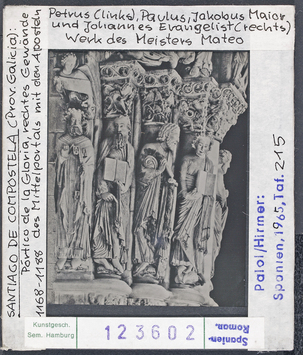 Petrus (links), Paulus, Jakobus Maior
und Johannes Evangelist (rechts)
Werk des Meisters Mateo
SANTIAGO DE COMPOSTELA (Prov. Galicia):
Pórtico de la Gloria, rechtes Gewände
des Mittelportals mit den Aposteln
1168-1188
Palol/Hirmer:
Spanien, 1965, Taf. 215
Kunstgesch.
Sem. Hamburg
123602
Spanien-
Roman.